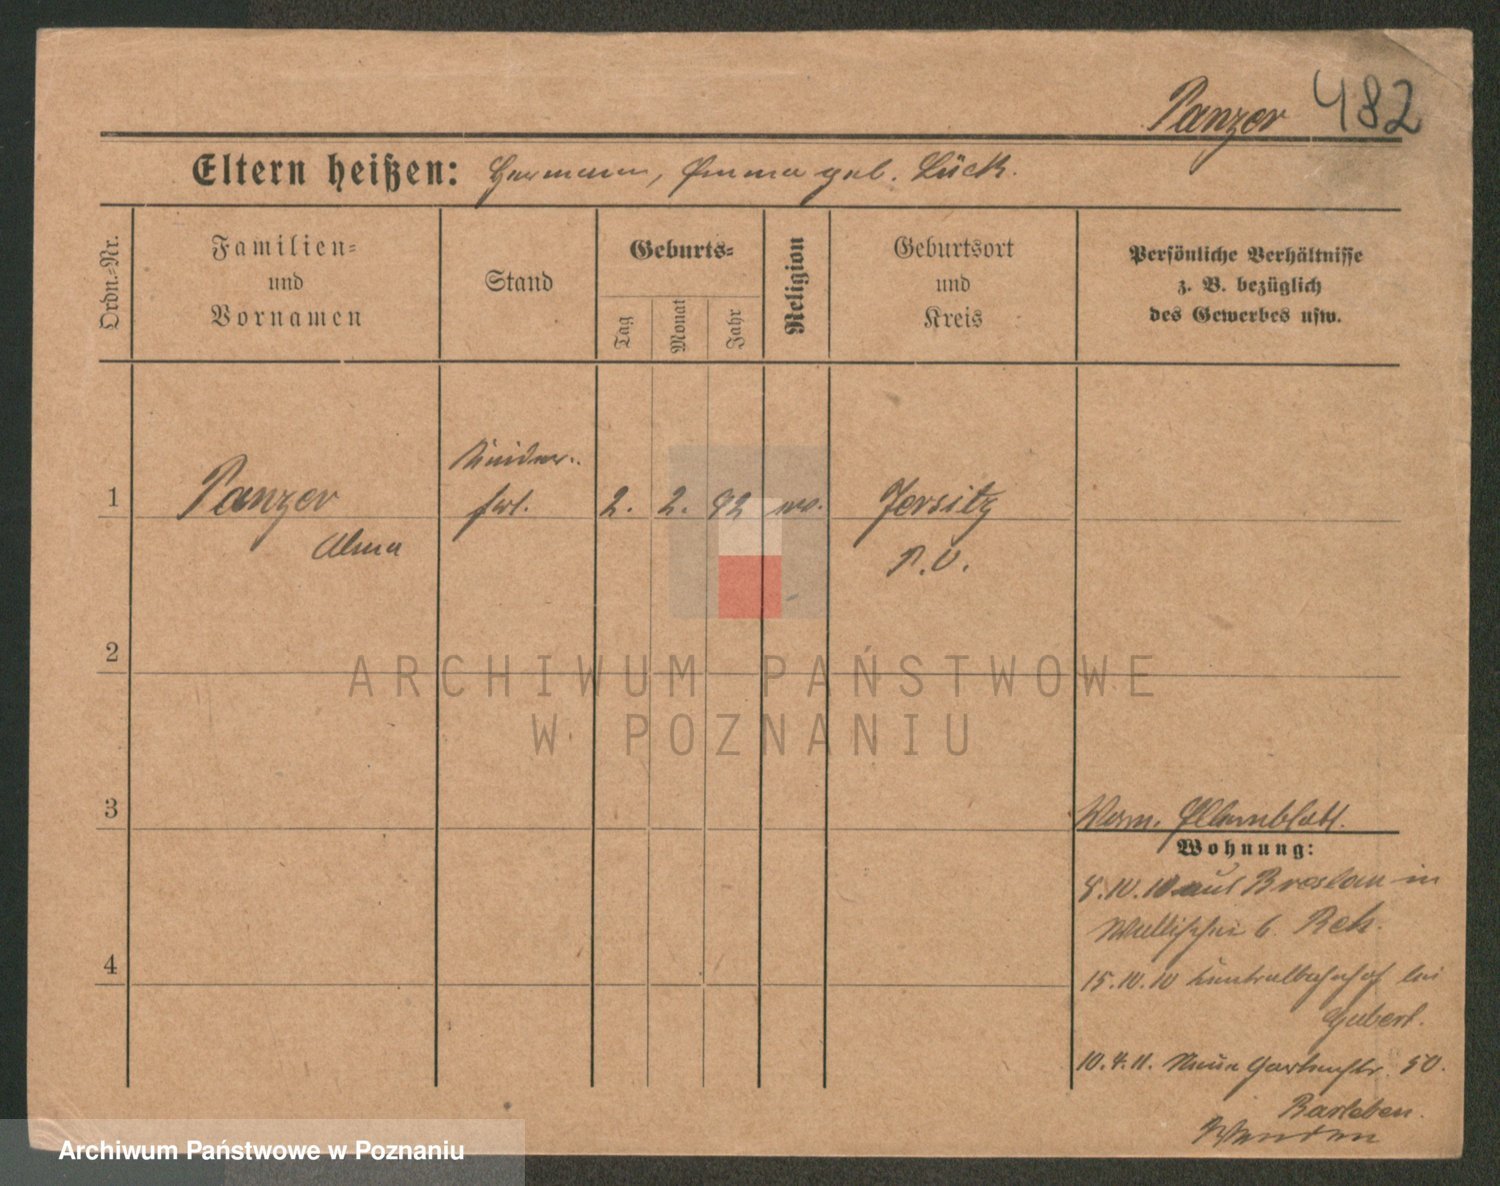 Panzer 482
Eltern heißen: Hermann, Emma geb. Lück.
Ordn.-Nr.
Familien-
und
Vornamen
Stand
Geburts-
Tag
Monat
Jahr
Religion
Geburtsort
und
Kreis
Persönliche Verhältnisse
z. B. bezüglich
des Gewerbes usw.
1 Panzer
Alma
Kinder-
frl.
2. 2. 92 ev.
Jersitz
P.O.
2
3
4
Verm. Elternblatt.
Wohnung:
8.10.10 aus Breslau in
Wallischei b. Reh.
15.10.10 Zentralbahnhof bei
Gubert.
10.4.11. Neue Gartenstr. 50.
Barleben.
ARCHIWUM PAŃSTWOWE
W POZNANIU
Archiwum Państwowe w Poznaniu